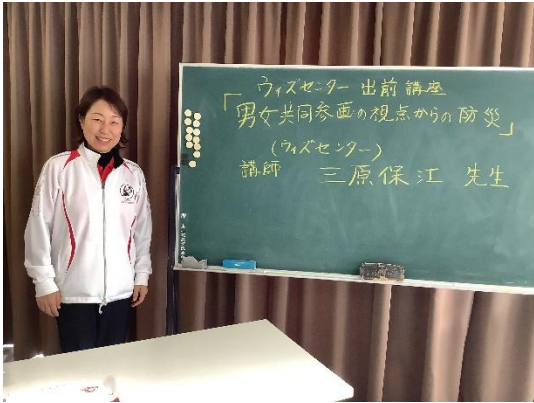 ウィズセンター 出前講座
「男女共同参画の視点からの防災」
(ウィズセンター)
講師 三原保江 先生